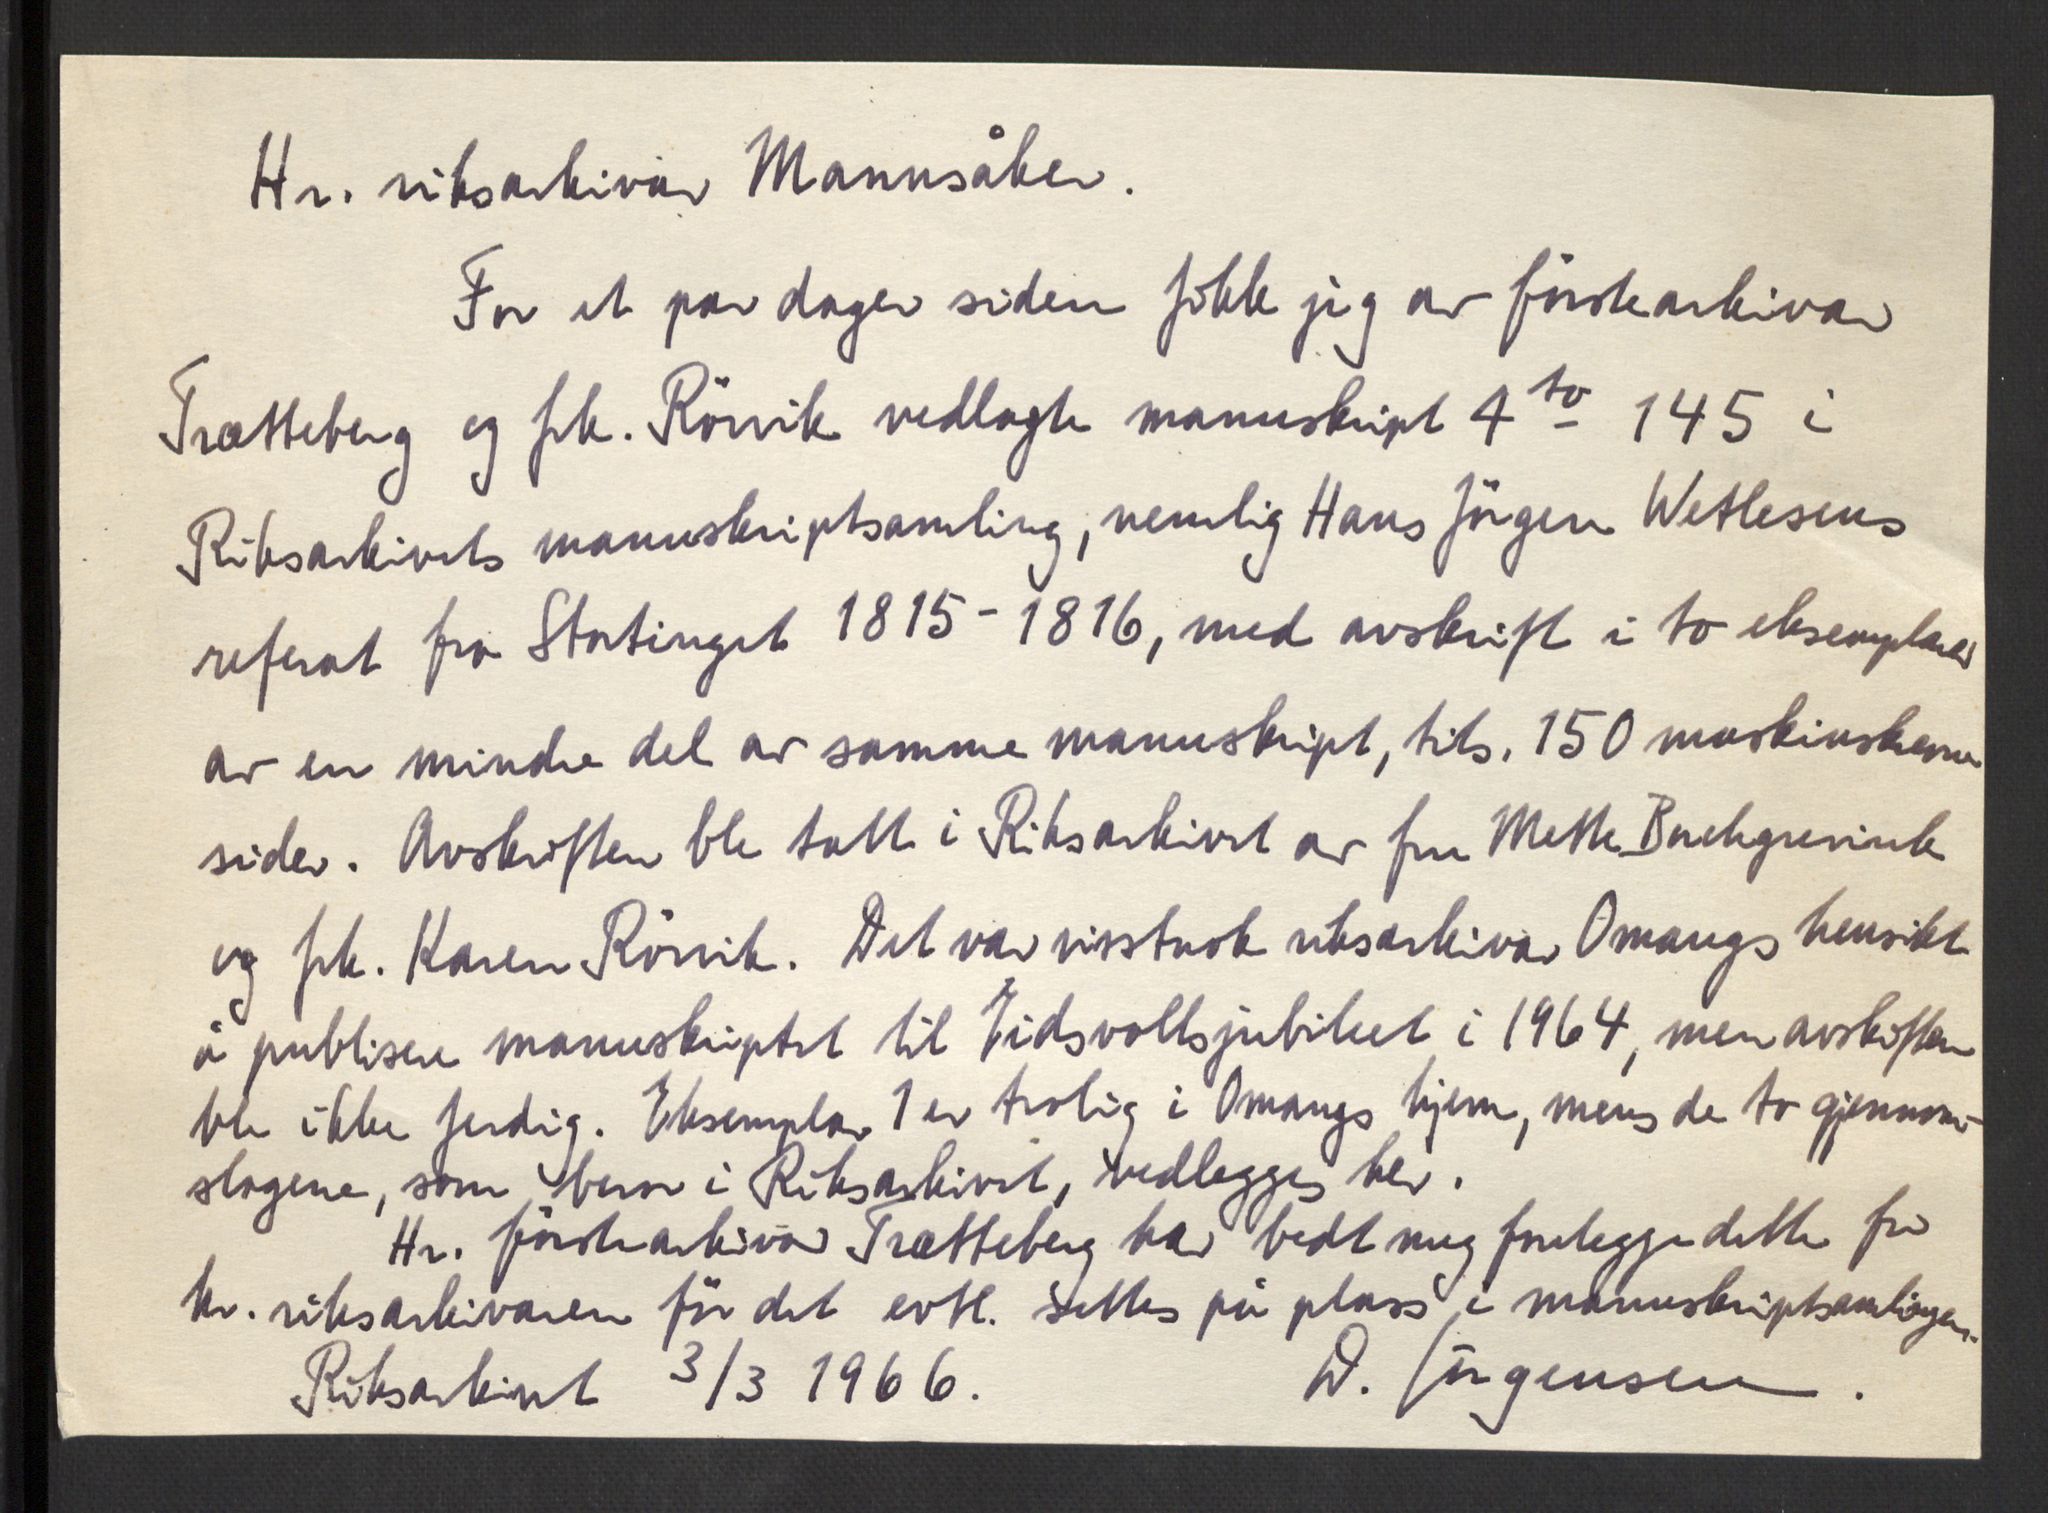 Hr. riksarkivar Mannsåker.
For et par dager siden fikk jeg av förstearkivar
Trætteberg og frk. Rörvik vedlagte manuskript 4to 145 i
Riksarkivets manuskriptsamling, nemlig Hans Jörgen Wetlesens
referat fra Stortinget 1815-1816, med avskrift i to eksemplarer
av en mindre del av samme manuskript, tils. 150 maskinskrevne
sider. Avskriften ble tatt i Riksarkivet av fru Mette Buchgrevink
og frk. Karen Rörvik. Det var visstnok riksarkivar Omangs hensikt
å publisere manuskriptet til Eidsvollsjubileet i 1964, men avskriften
ble ikke ferdig. Eksemplar 1 er trolig i Omangs hjem, mens de to gjennom-
slagene, som beror i Riksarkivet, vedlegges her.
Hr. förstearkivar Trætteberg har bedt meg forelegge dette for
hr. riksarkivaren för det evtl. settes på plass i manuskriptsamlingen.
Riksarkivet 3/3 1966. D. Jörgensen.